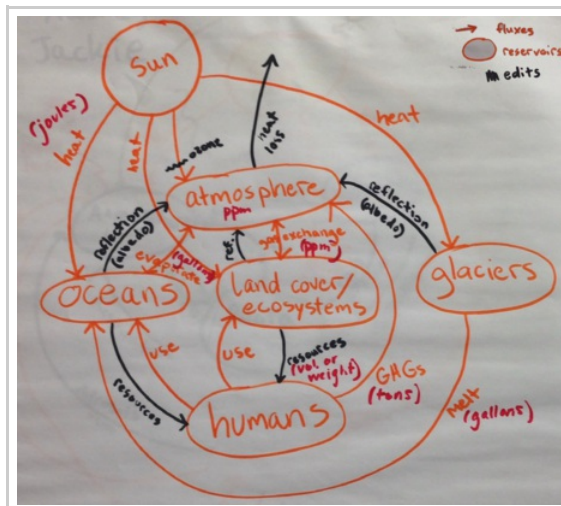 Jackie
fluxes
reservoirs
edits
Sun
(joules)
heat
heat
ozone
heat
loss
heat
atmosphere
ppm
reflection
(albedo)
reflection
(albedo)
evaporate
(gallons)
ref.
gas exchange
(ppm)
oceans
land cover/
ecosystems
glaciers
use
use
resources
resources
(vol or
weight)
GHGs
(tons)
melt
(gallons)
humans